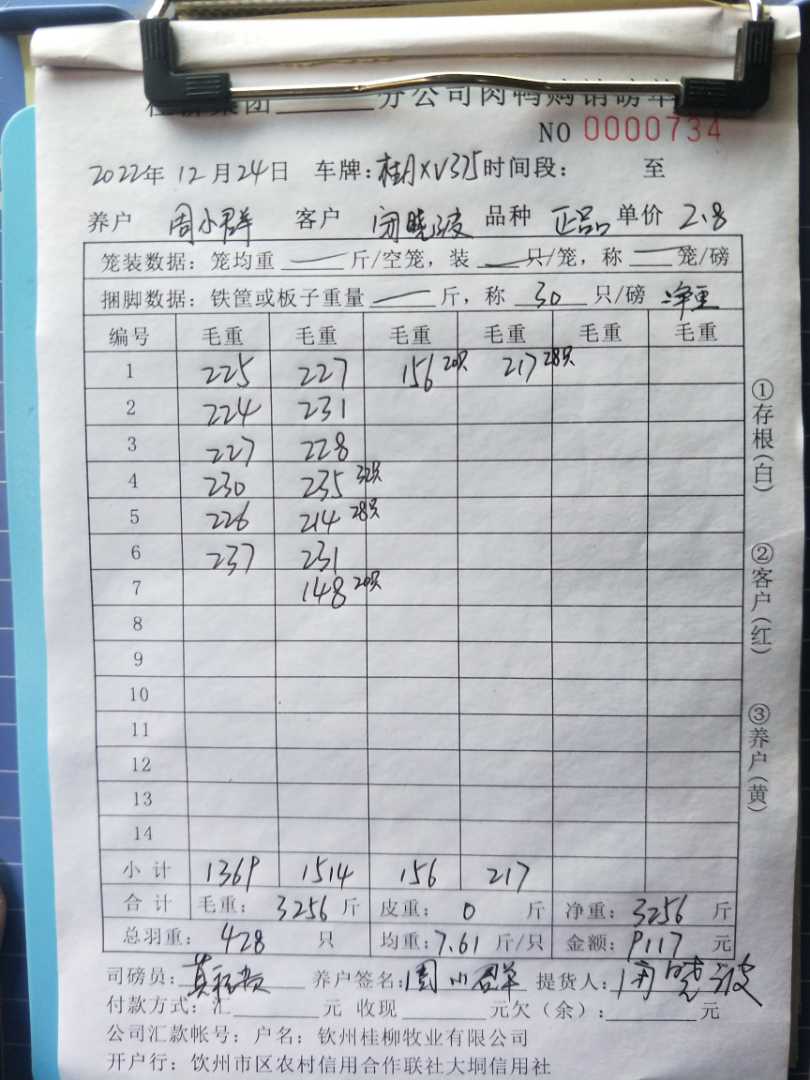 分公司肉鸭购销磅单
NO 0000734
2022年 12月24日 车牌:桂AXV375 时间段: 至
养户 周小群 客户 闭晓波 品种 正品 单价 2.8
笼装数据: 笼均重 斤/空笼, 装 只/笼, 称 笼/磅
捆脚数据: 铁筐或板子重量 斤, 称 30 只/磅 净重
编号 毛重 毛重 毛重 毛重 毛重 毛重
1 225 227 156 20只 217 28只
2 224 231
3 227 228
4 230 235 32只
5 226 214 28只
6 237 231
7 148 20只
8
9
10
11
12
13
14
小计 1369 1514 156 217
合计 毛重: 3256 斤 皮重: 0 斤 净重: 3256 斤
总羽重: 428 只 均重: 7.61 斤/只 金额: 9117 元
司磅员: 养户签名: 周小群 提货人: 闭晓波
付款方式: 汇 元 收现 元欠(余): 元
公司汇款帐号: 户名: 钦州桂柳牧业有限公司
开户行: 饮州市区农村信用合作联社大垌信用社
①存根(白)
②客户(红)
③养户(黄)